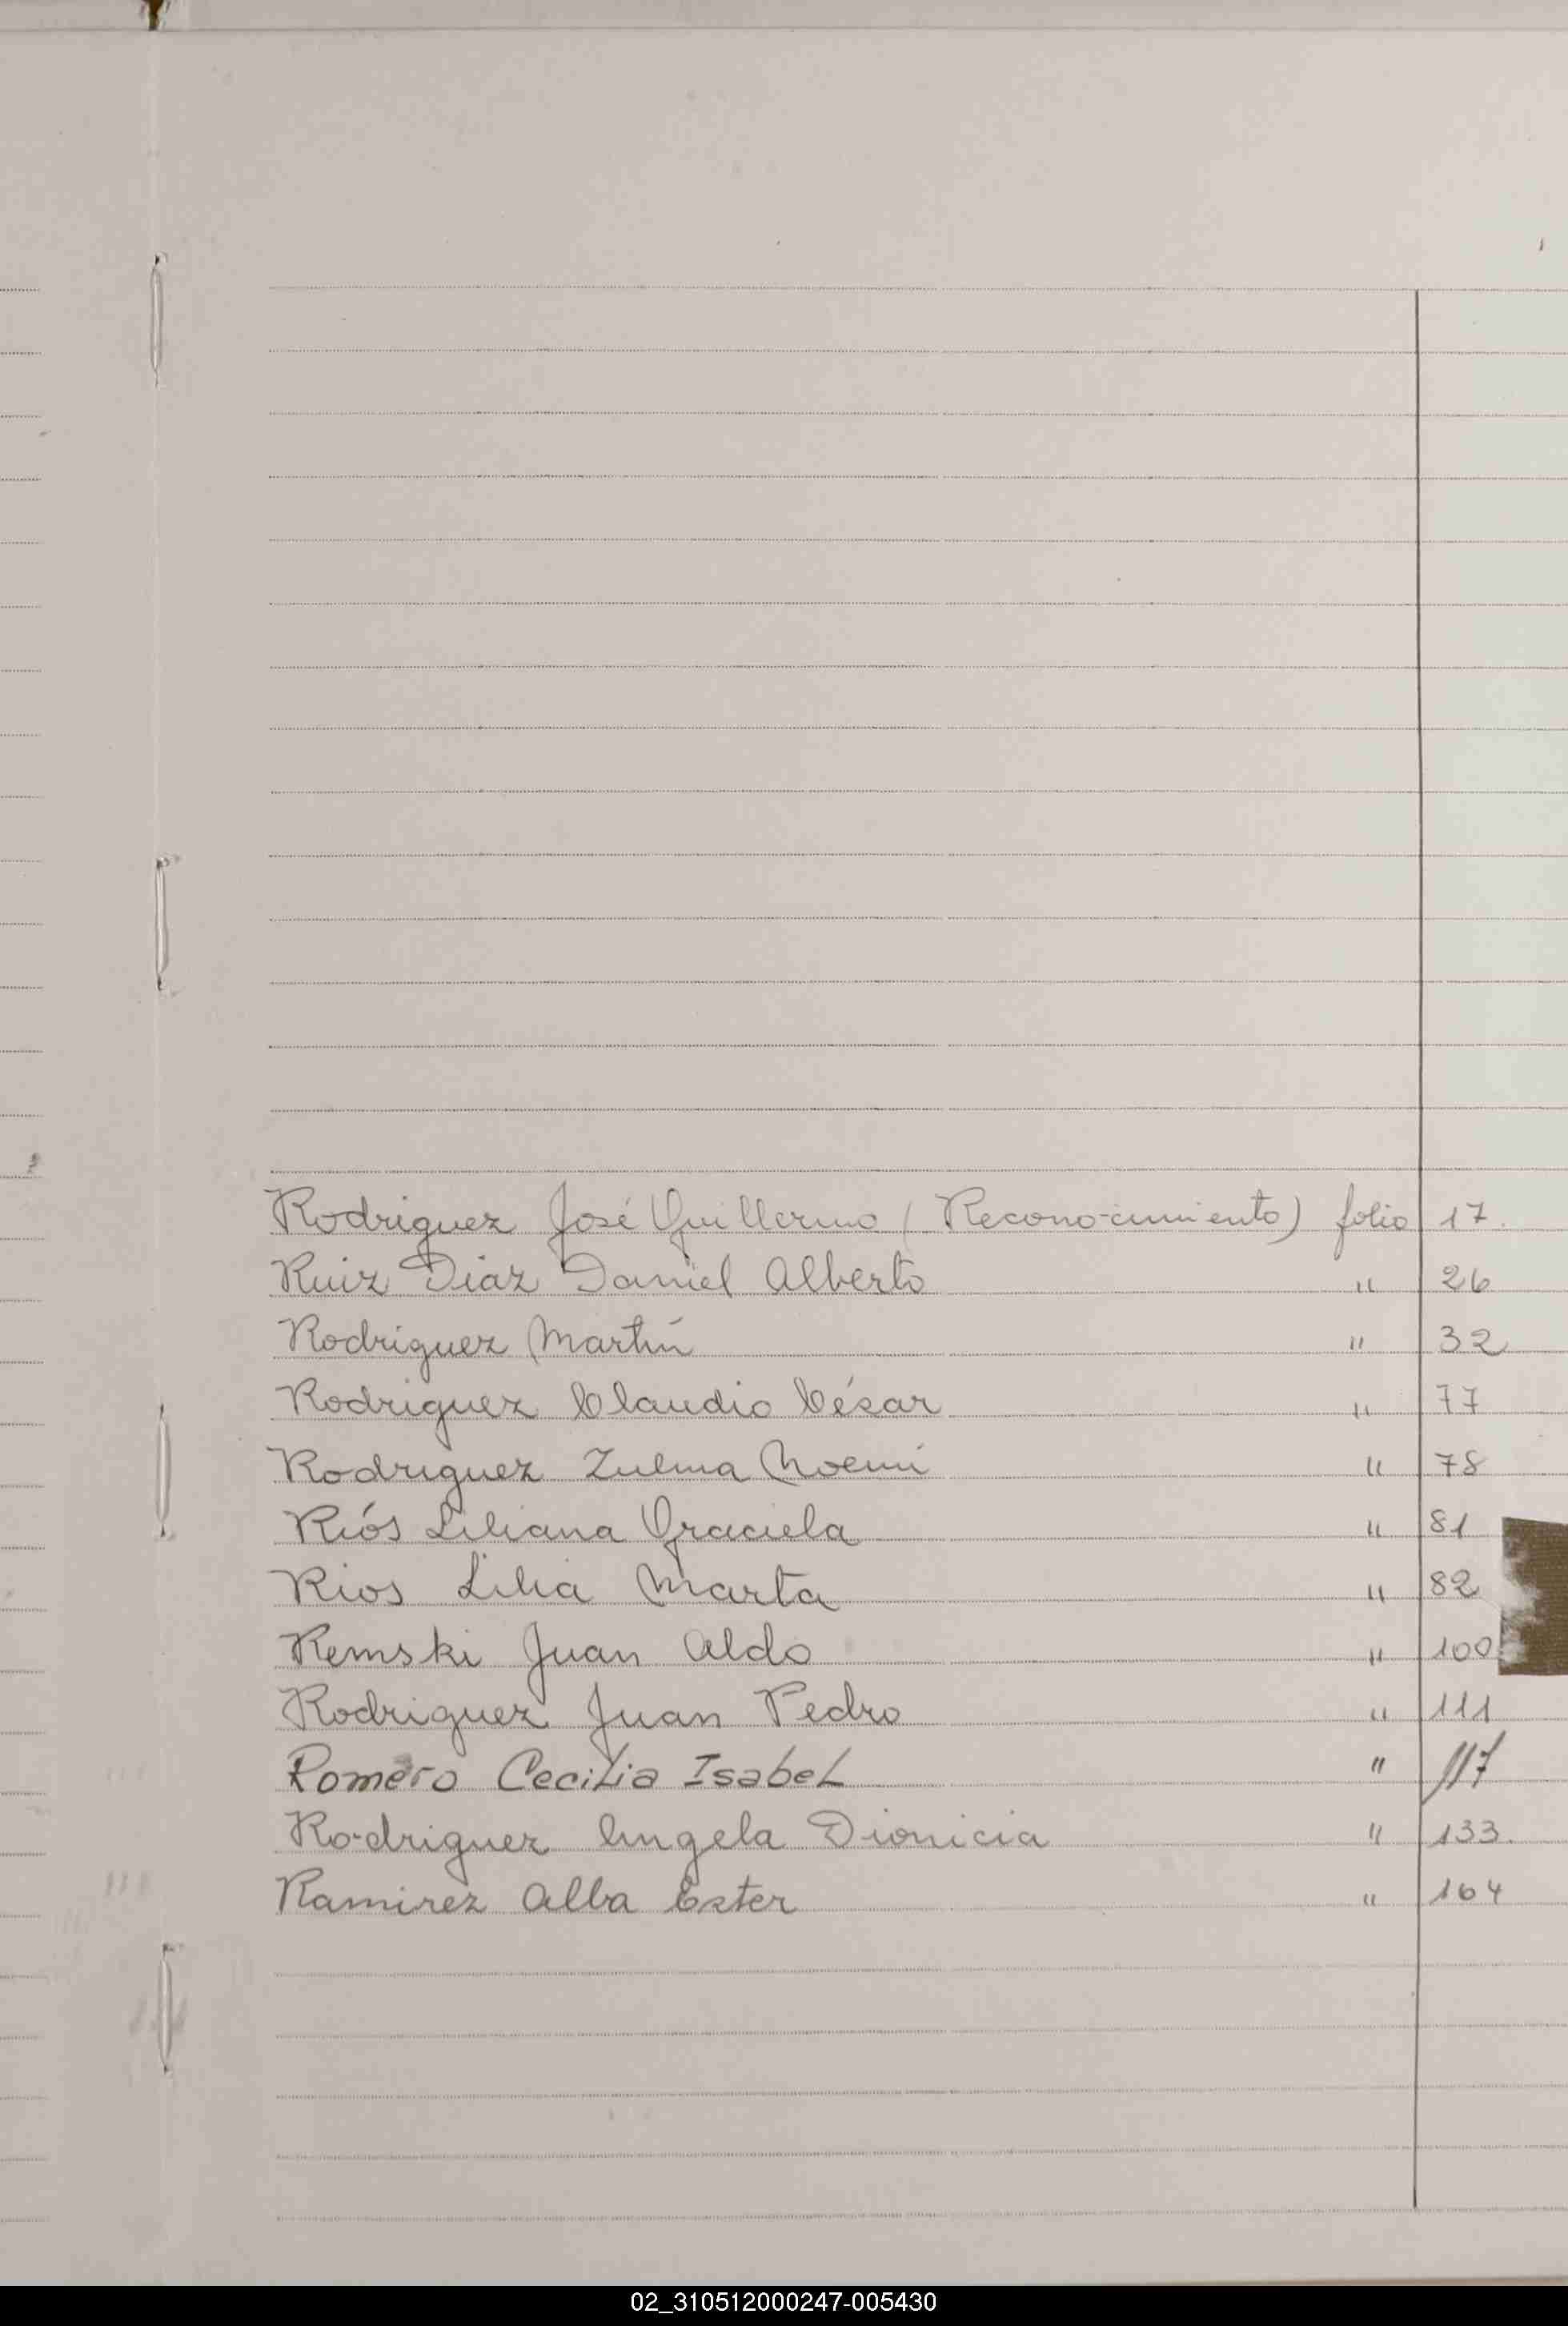 Rodriguez José Guillermo (Reconocimiento) folio 17.
Ruiz Diaz Daniel Alberto " 26
Rodriguez Martín " 32
Rodriguez Claudio César " 77
Rodriguez Zulma Noemí " 78
Riós Liliana Graciela " 81
Rios Lilia Marta " 82
Remski Juan Aldo " 100
Rodriguez Juan Pedro " 111
Romero Cecilia Isabel " 117
Rodriguez Angela Dionicia " 133.
Ramirez Alba Ester " 164
02_310512000247-005430